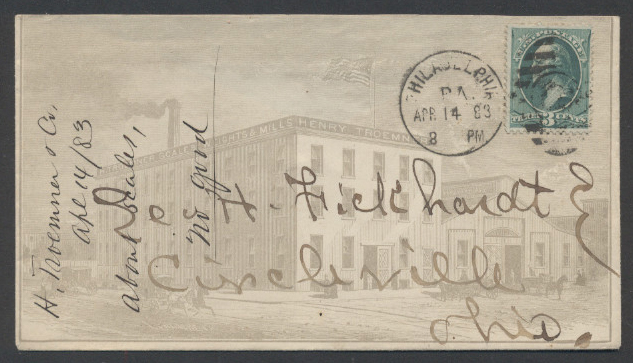 PHILADELPHIA
PA.
APR 14 83
8 PM
U.S. POSTAGE
THREE 3 CENTS
SCALES WEIGHTS & MILLS HENRY TROEMNER
H. Troemner & Co.
Apl 14/83
about Scales,
no good
Fickhardt
Circleville
Ohio.